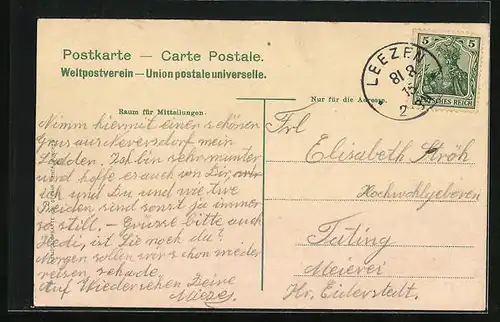 Postkarte — Carte Postale.
Weltpostverein — Union postale universelle.
LEEZEN
5 5
DEUTSCHES REICH
Raum für Mitteilungen.
Nur für die Adresse.
Nimm hiermit einen schönen
Gruss aus Neversdorf mein
Lisschen. Ich bin sehr munter
und hoffe es auch von Dir, wir
ich und Du und wie zwe
Beiden sind sonst ja immer
so still. — Grüsse bitte auch
Hedi, ist Sie noch da?
Morgen sollen wir schon wieder
reisen, schade.
Auf Wiedersehen Deine
Mieze.
Frl
Elisabeth Ströh
Hochwohlgeboren
Tating
Meierei
Kr. Eiderstedt.